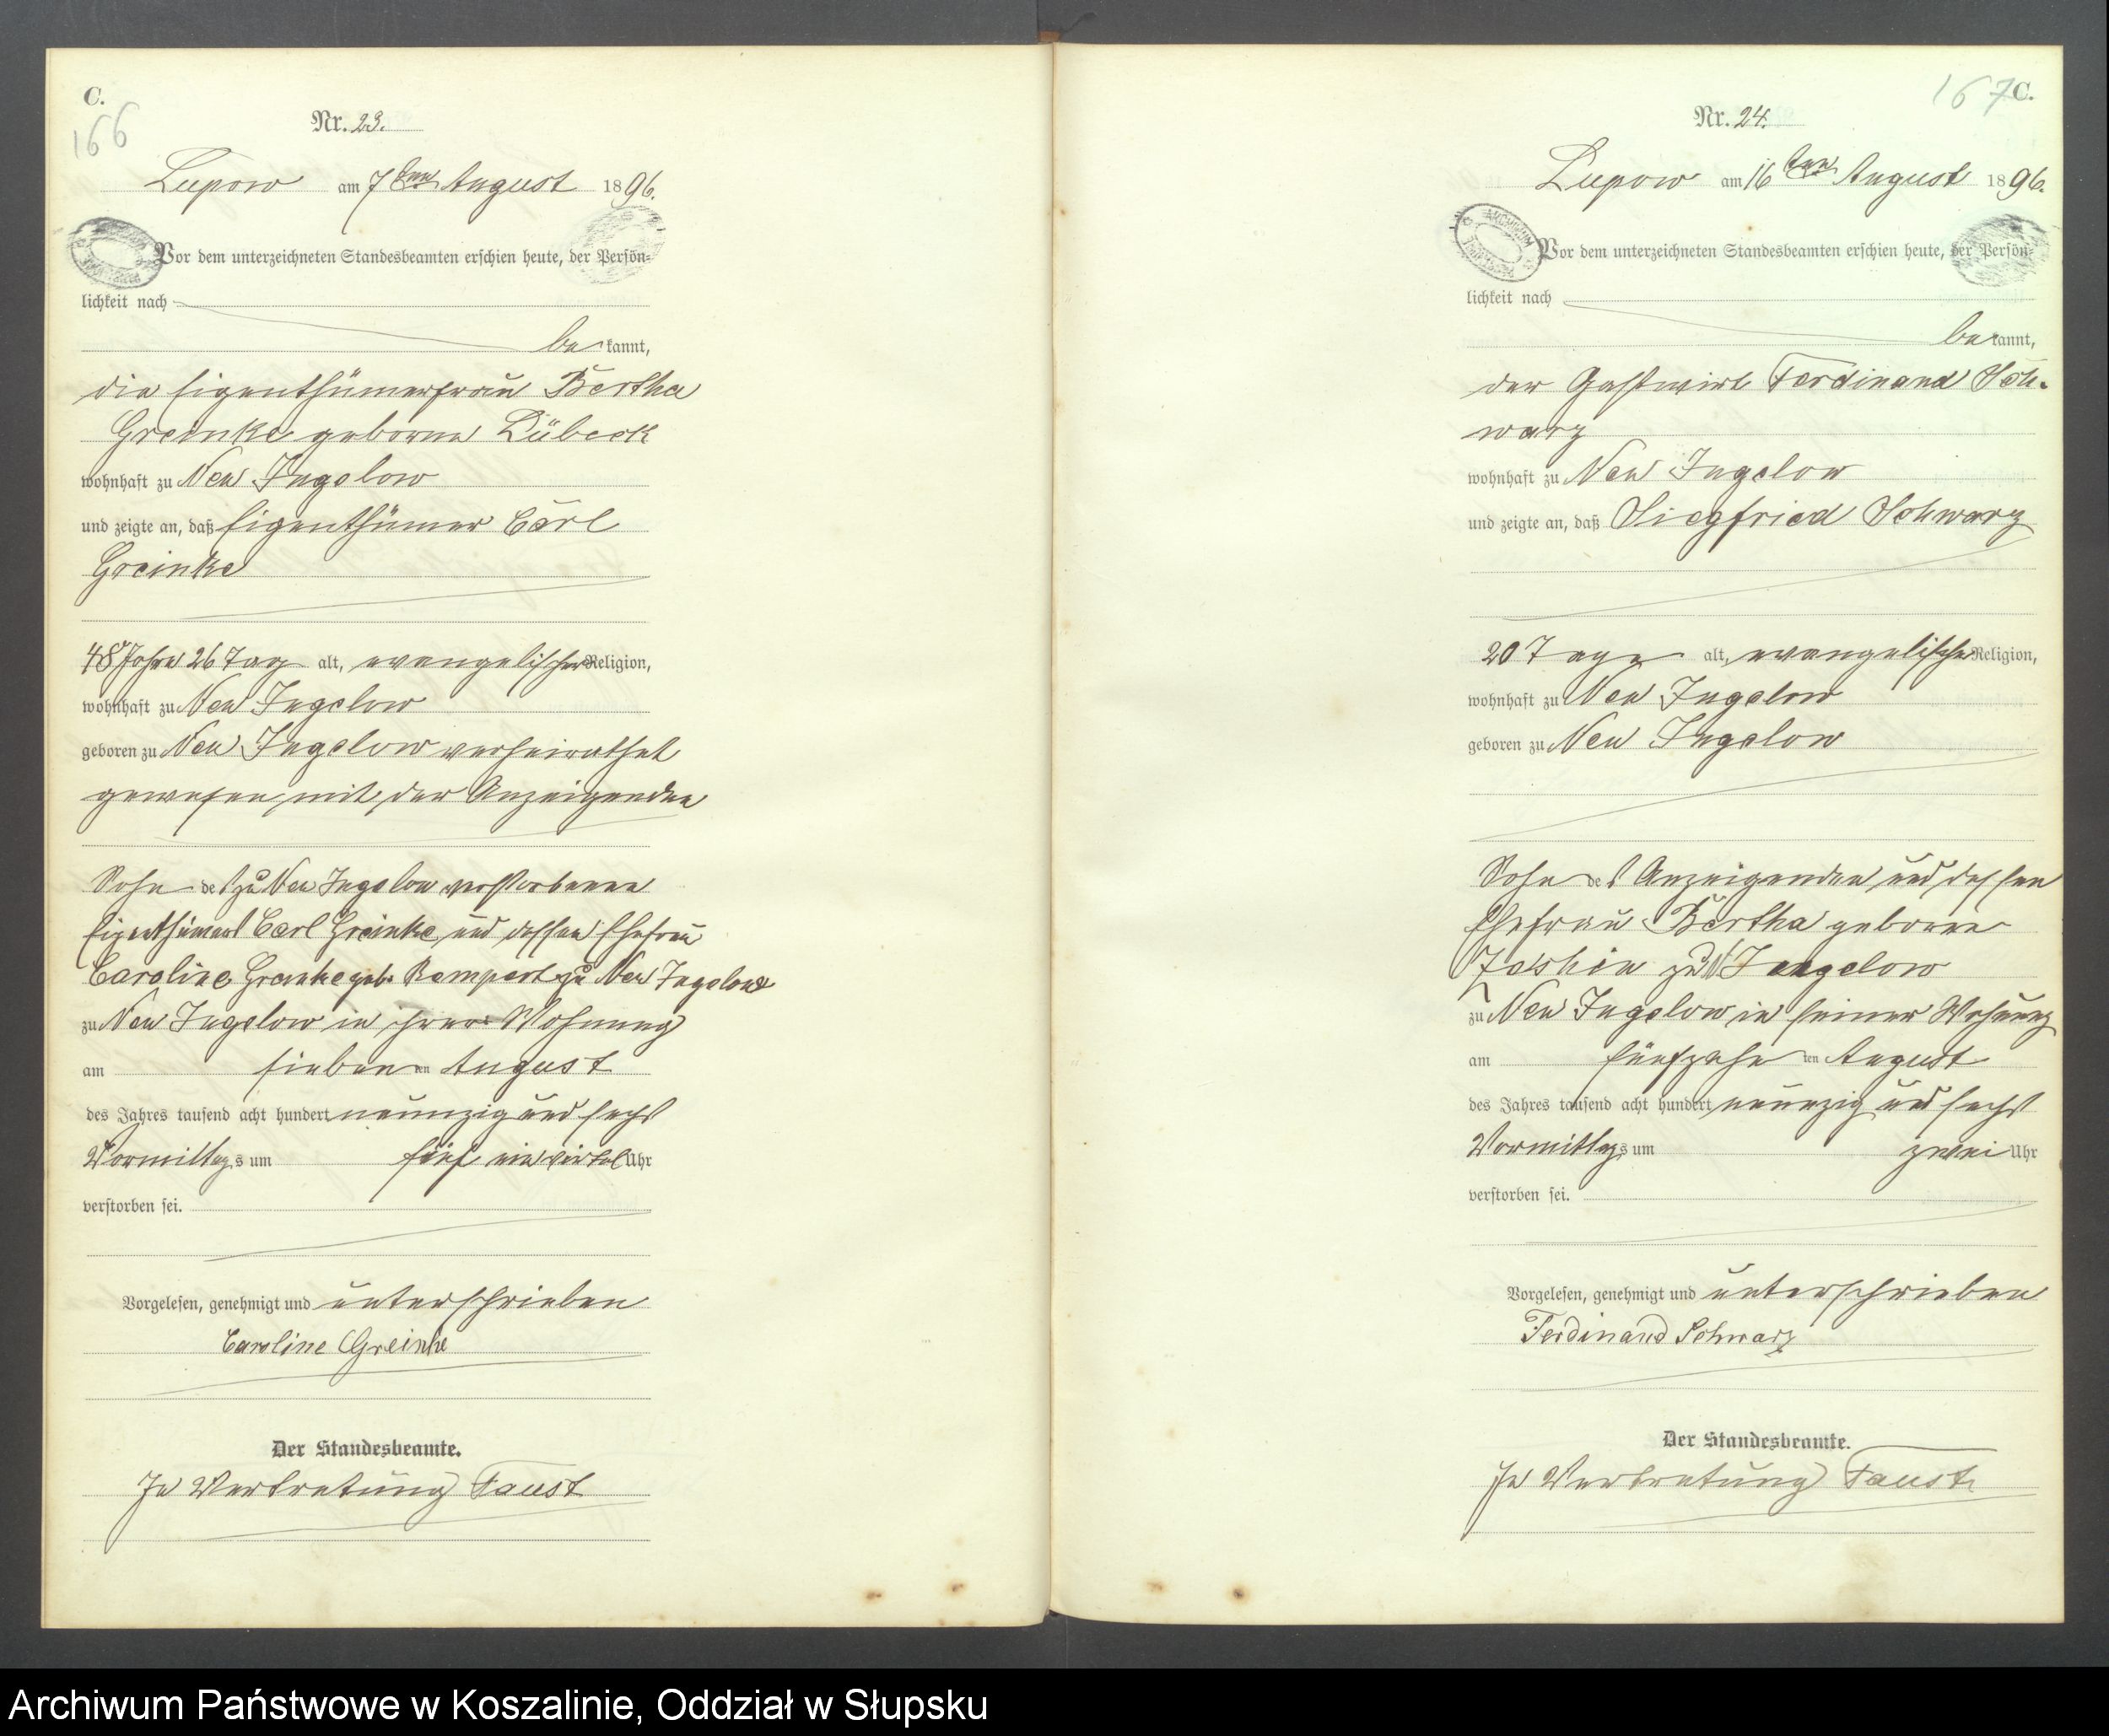 C.
166
Nr. 23.
Lupow am 7ten August 1896.
Vor dem unterzeichneten Standesbeamten erschien heute, der Persön-
lichkeit nach
be kannt,
die Eigenthümerfrau Bertha
Greinke geborne Lübeck
wohnhaft zu Neu Jugelow
und zeigte an, daß Eigenthümer Carl
Greinke
48 Jahre 26 Tag alt, evangelischer Religion,
wohnhaft zu Neu Jugelow
geboren zu Neu Jugelow verheirathet
gewesen mit der Anzeigenden
Sohn des zu Neu Jugelow verstorbenen
Eigenthümers Carl Greinke und dessen Ehefrau
Caroline Greinke geb. Rempert zu Neu Jugelow
zu Neu Jugelow in ihrer Wohnung
am sieben ten August
des Jahres tausend acht hundert neunzig und sechs
Vormittags um fünf ein viertel Uhr
verstorben sei.
Vorgelesen, genehmigt und unterschrieben
Caroline Greinke
Der Standesbeamte.
In Vertretung Faust
167 C.
Nr. 24.
Lupow am 16ten August 1896.
Vor dem unterzeichneten Standesbeamten erschien heute, der Persön-
lichkeit nach
be kannt,
der Gastwirt Ferdinand Sch-
warz
wohnhaft zu Neu Jugelow
und zeigte an, daß Siegfried Schwarz
20 Tage alt, evangelischer Religion,
wohnhaft zu Neu Jugelow
geboren zu Neu Jugelow
Sohn des Anzeigenden und dessen
Ehefrau Bertha geborne
zu N Jugelow
zu Neu Jugelow in seiner Wohnung
am fünfzehn ten August
des Jahres tausend acht hundert neunzig und sechs
Vormittags um zwei Uhr
verstorben sei.
Vorgelesen, genehmigt und unterschrieben
Ferdinand Schwarz
Der Standesbeamte.
In Vertretung Faust
Archiwum Państwowe w Koszalinie, Oddział w Słupsku